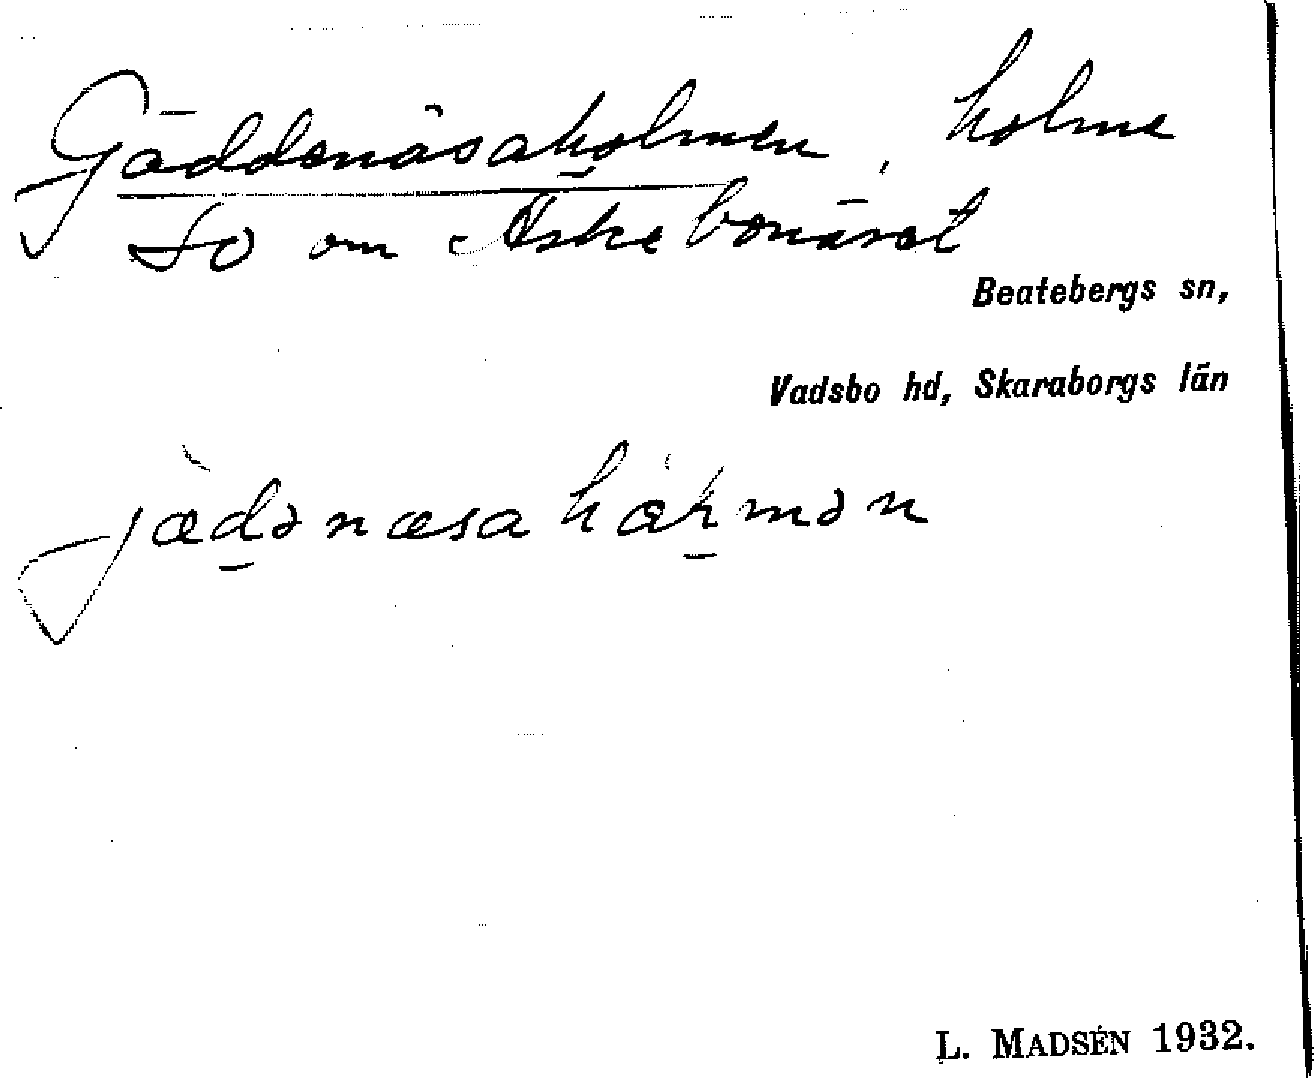 Gäddenäsaholmen, holme
SO om Askebonäset
Beatebergs sn,
Vadsbo hd, Skaraborgs län
jæ̀dənæsahàɫmən
L. MADSÉN 1932.